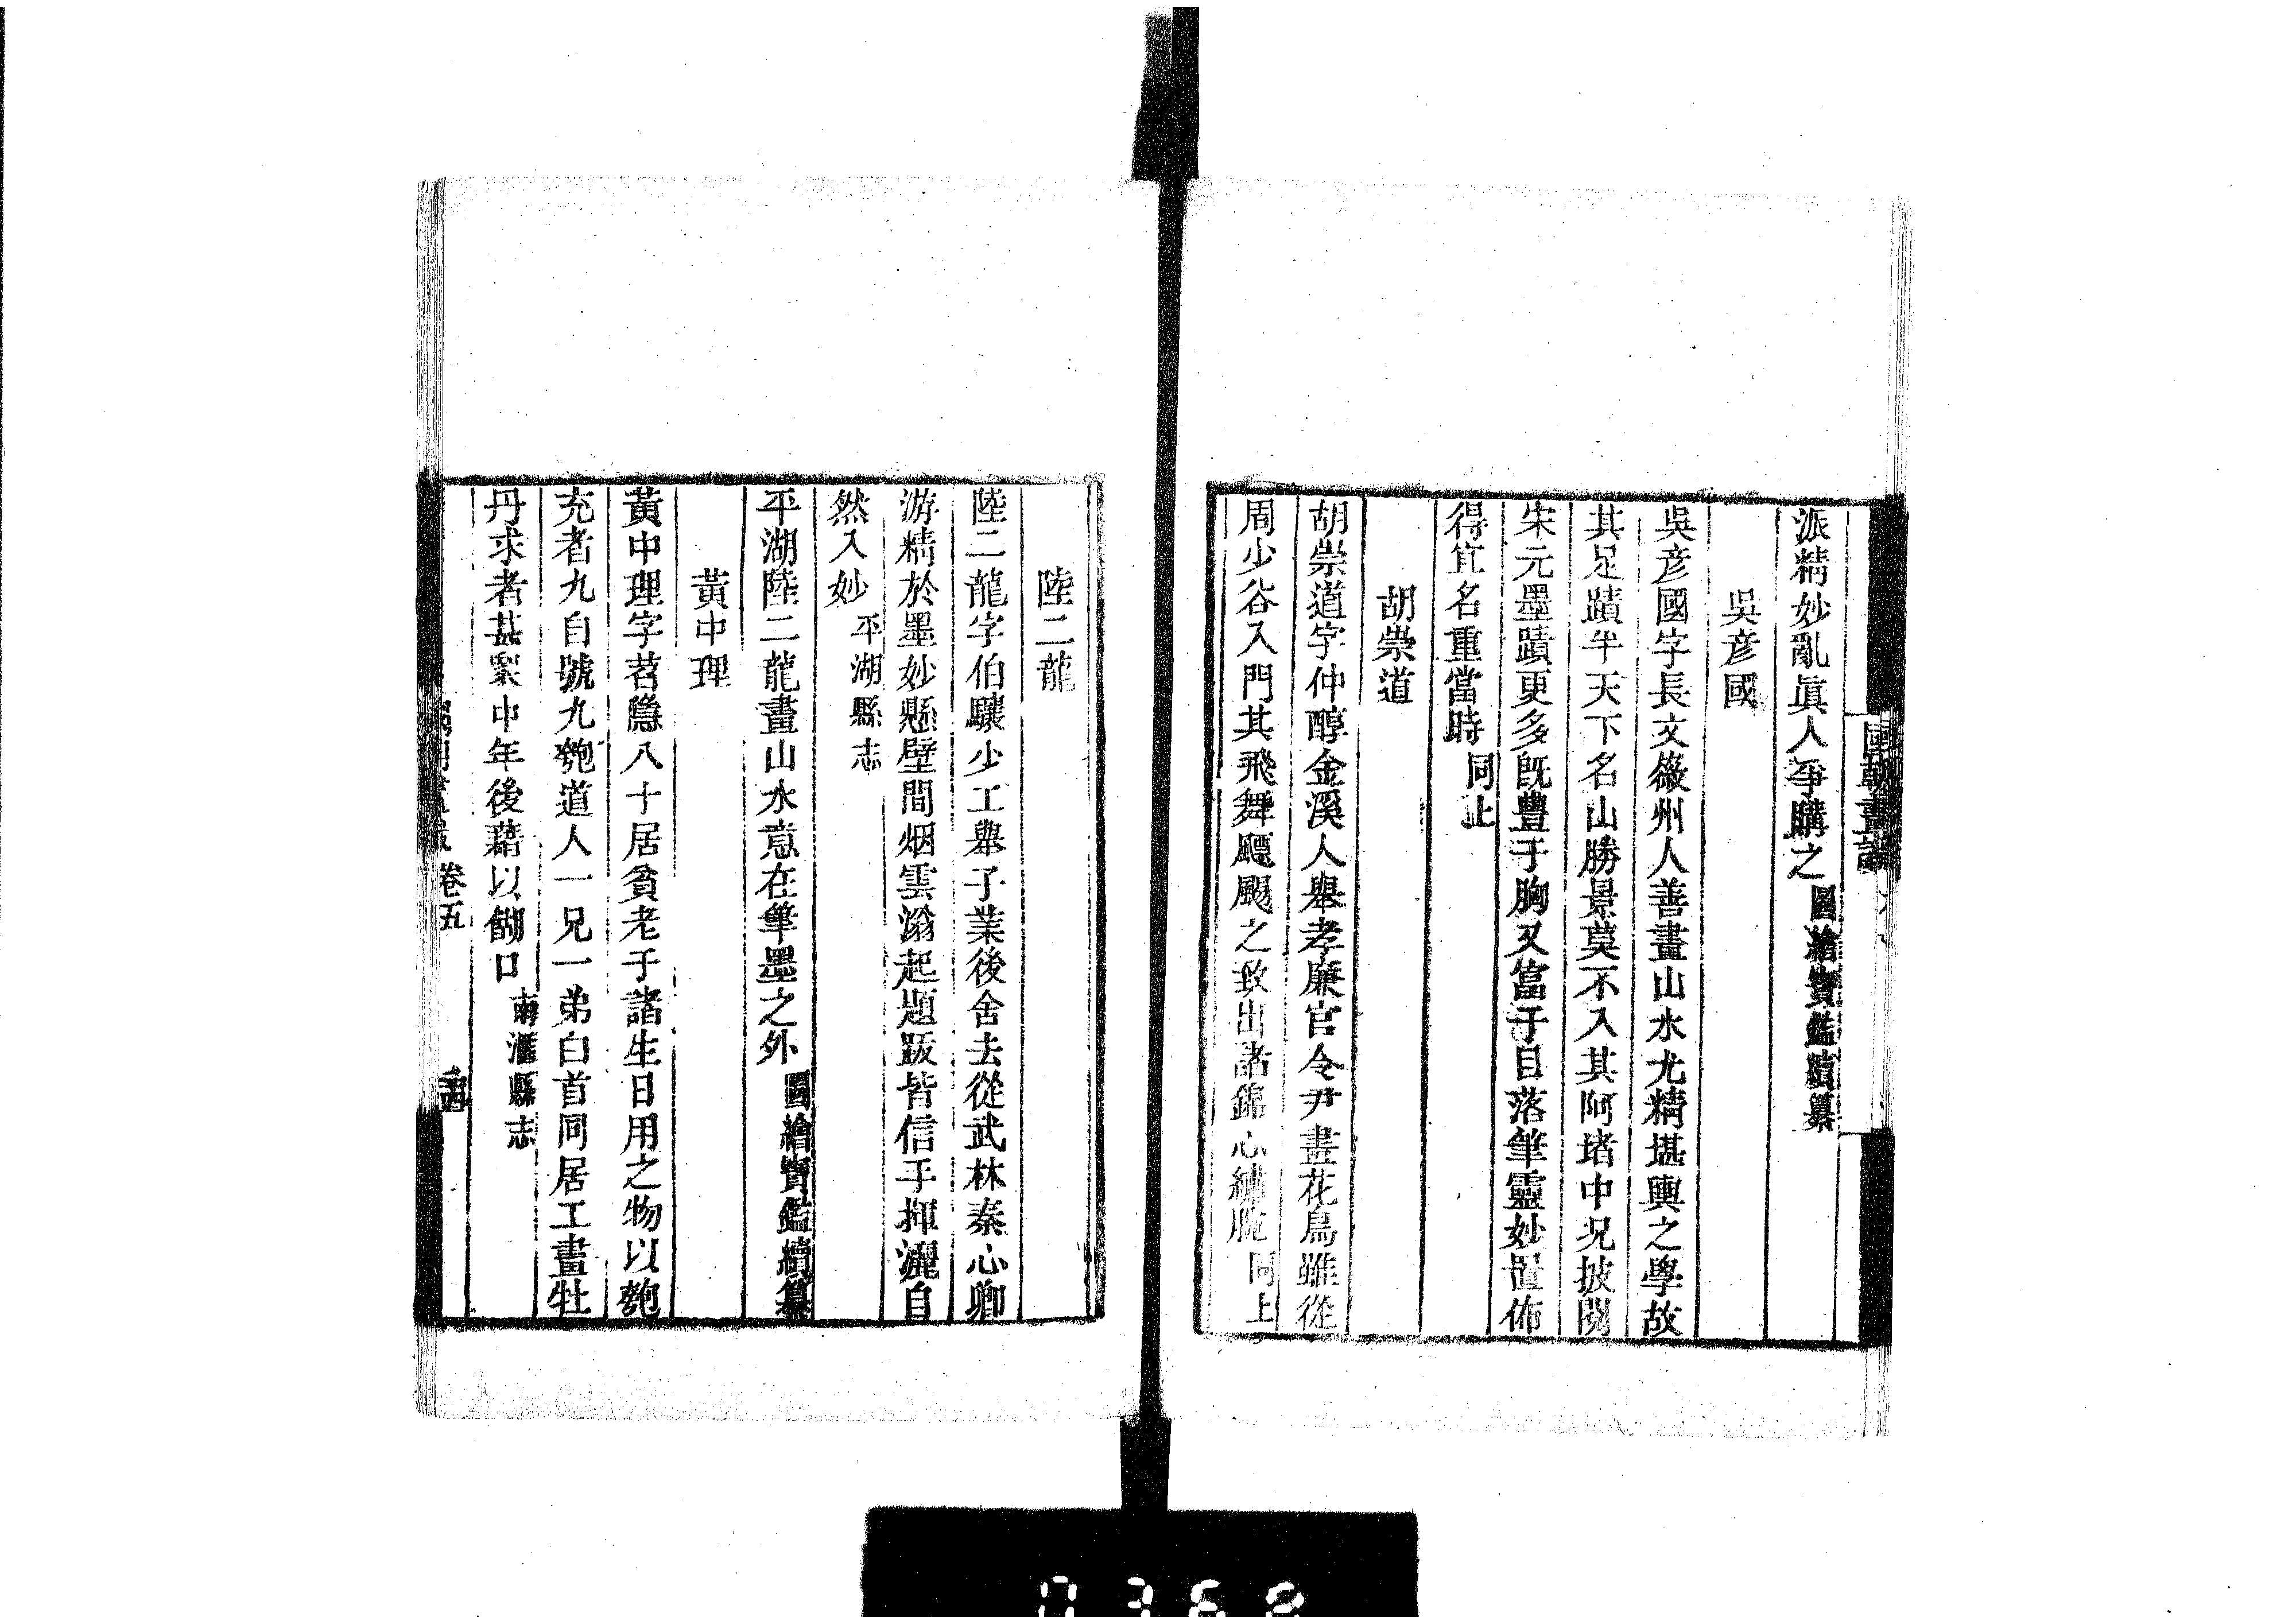 國朝畫識
派精妙亂眞人爭購之 圖繪寶鑑續纂
吳彦國
吳彦國字長文徽州人善畫山水尤精堪輿之學故
其足蹟半天下名山勝景莫不入其阿堵中况披閱
宋元墨蹟更多旣豐于胸又富于目落筆靈妙置佈
得宜名重當時 同上
胡崇道
胡崇道字仲醇金溪人舉孝廉官令尹畫花鳥雖從
周少谷入門其飛舞飂颺之致出諸錦心繡腕 同上
陸二龍
陸二龍字伯驤少工舉子業後舍去從武林秦心卿
游精於墨妙懸壁間烟雲滃起題跋皆信手揮灑自
然入妙 平湖縣志
平湖陸二龍畫山水意在筆墨之外 圖繪寶鑑續纂
黃中理
黃中理字茗隱八十居貧老于諸生日用之物以匏
充者九自號九匏道人一兄一弟白首同居工畫牡
丹求者甚衆中年後藉以餬口 南滙縣志
卷五